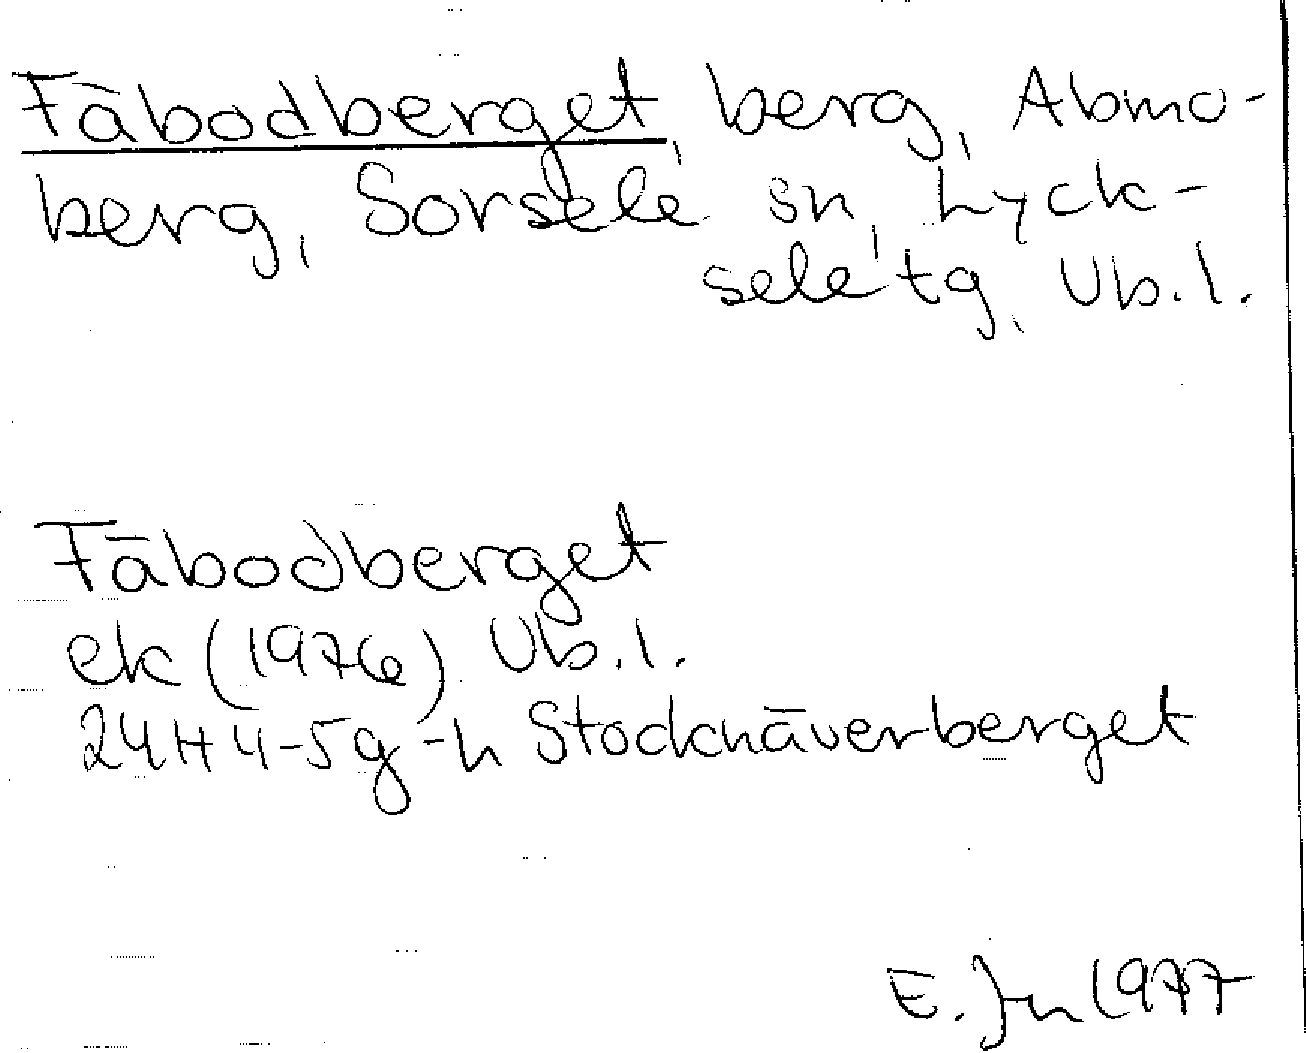 Fäbodberget, berg, Abmo-
berg, Sorsele sn, Lyck-
sele tg, Vb.l.
Fäbodberget
ek (1976) Vb.l.
24H 4-5g-h Stocknäverberget
E. Jn 1977